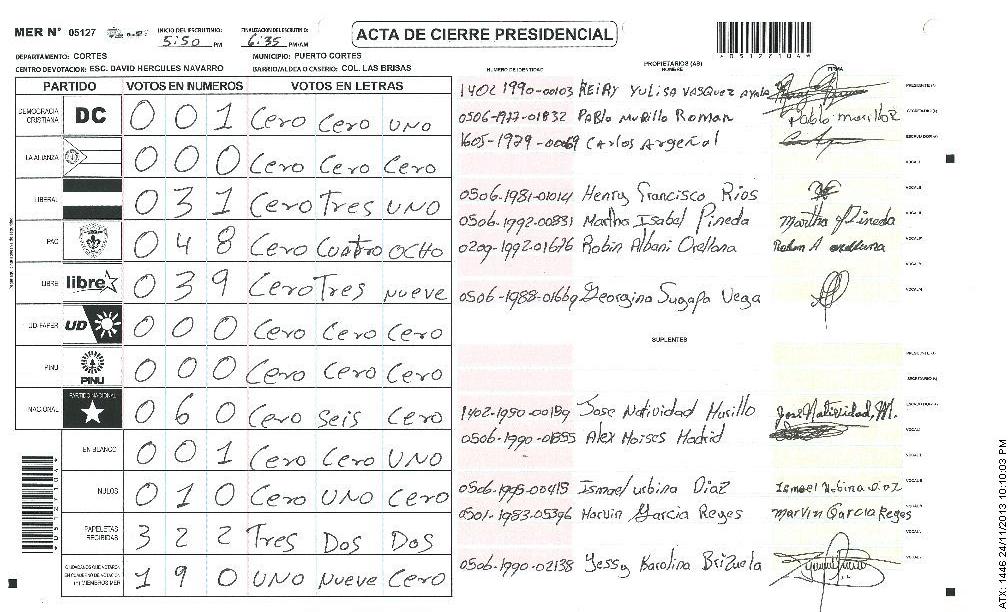 MER N° 05127 INICIO DEL ESCRUTINIO: 5:50 PM FINALIZACION DEL ESCRUTINIO: 6:35 PM/AM
ACTA DE CIERRE PRESIDENCIAL
05127104
DEPARTAMENTO: CORTES MUNICIPIO: PUERTO CORTES
CENTRO DE VOTACION: ESC. DAVID HERCULES NAVARRO BARRIO/ALDEA O CASERIO: COL. LAS BRISAS
PARTIDO VOTOS EN NUMEROS VOTOS EN LETRAS
DEMOCRACIA CRISTIANA DC 0 0 1 Cero Cero UNO
LA ALIANZA 0 0 0 Cero Cero Cero
LIBERAL 0 3 1 Cero Tres UNO
PAC 0 4 8 Cero Cuatro OCHO
LIBRE libre 0 3 9 Cero Tres Nueve
UD-FAPER UD 0 0 0 Cero Cero Cero
PINU PINU 0 0 0 Cero Cero Cero
NACIONAL PARTIDO NACIONAL 0 6 0 Cero Seis Cero
EN BLANCO 0 0 1 Cero Cero UNO
NULOS 0 1 0 Cero UNO Cero
PAPELETAS RECIBIDAS 3 2 2 Tres Dos Dos
CIUDADANOS QUE VOTARON EN CUADERNO DE VOTACION (+) MIEMBROS MER 1 9 0 UNO Nueve Cero
PROPIETARIOS (AS)
NUMERO DE IDENTIDAD NOMBRE FIRMA
1402 1990-00103 REINY YULISA VASQUEZ Ayala PRESIDENTE (A)
0506-1977-01832 PABLO MURILLO ROMAN Pablo murilloR SECRETARIO (A)
1605-1979-00069 Carlos Argeñal ESCRUTADOR (A)
VOCAL I
0506-1981-01014 Henry Francisco Rios
0506-1992-00831 Martha Isabel Pineda Martha Y Pineda
0209-1992-01676 Robin Albani Orellana Robin A orellana
0506-1988-01669 Georgina Sugapa Vega
SUPLENTES
PRESIDENTE (A)
SECRETARIO (A)
1402-1950-00189 Jose Natividad Murillo Jose Natividad, M. ESCRUTADOR (A)
0506-1990-01855 Alex Moises Madrid VOCAL I
0506-1995-00415 Ismael urbina Diaz Ismael Urbina Diaz
0501-1983-05396 Marvin Garcia Reyes Marvin Garcia Reyes
0506-1990-02138 Yessy Karolina Brizuela
ATX: 1446 24/11/2013 10:10:03 PM